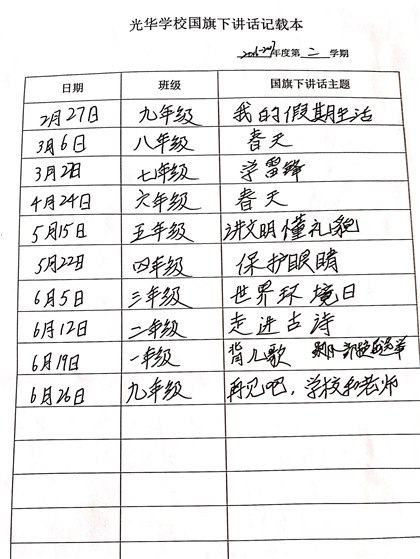 光华学校国旗下讲话记载本
2016-2017年度第二学期
日期 班级 国旗下讲话主题
2月27日 九年级 我的假期生活
3月6日 八年级 春天
3月2日 七年级 学雷锋
4月24日 六年级 春天
5月15日 五年级 讲文明懂礼貌
5月22日 四年级 保护眼睛
6月5日 三年级 世界环境日
6月12日 二年级 走进古诗
6月19日 一年级 背儿歌
6月26日 九年级 再见吧，学校和老师